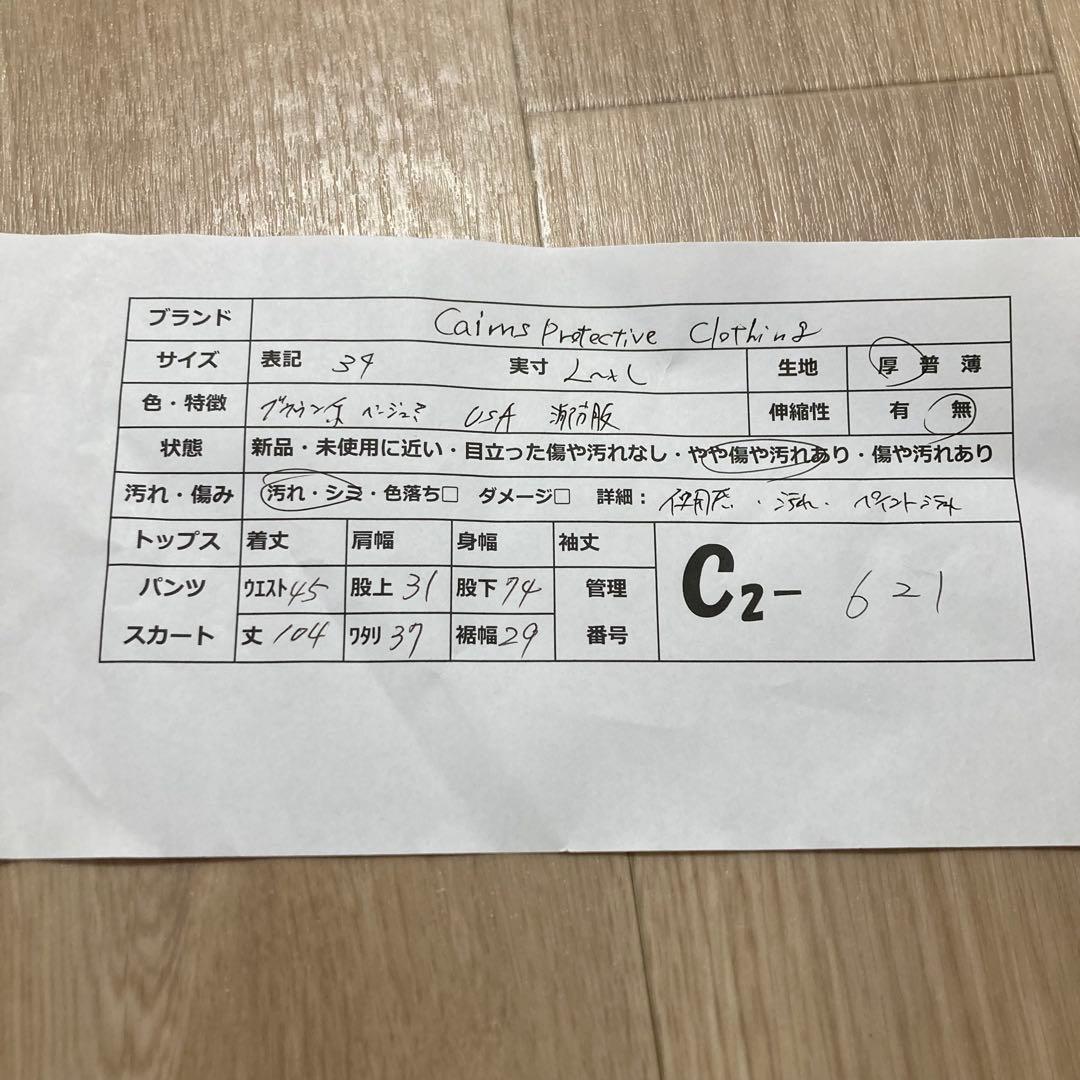 ブランド Cairns Protective Clothing
サイズ 表記 34 実寸 L~XL 生地 厚 普 薄
色・特徴 ブラウン系 ベージュ USA 消防服 伸縮性 有 無
状態 新品・未使用に近い・目立った傷や汚れなし・やや傷や汚れあり・傷や汚れあり
汚れ・傷み 汚れ・シミ・色落ち□ ダメージ□ 詳細: 使用感・汚れ・ペイント汚れ
トップス 着丈 肩幅 身幅 袖丈
パンツ ウエスト45 股上31 股下74 管理 C2- 621
スカート 丈104 ワタリ37 裾幅29 番号